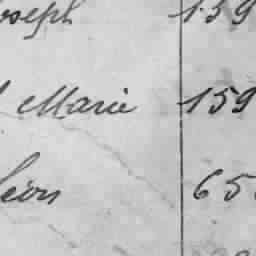 oseph 159
Marie 159
Léon 65